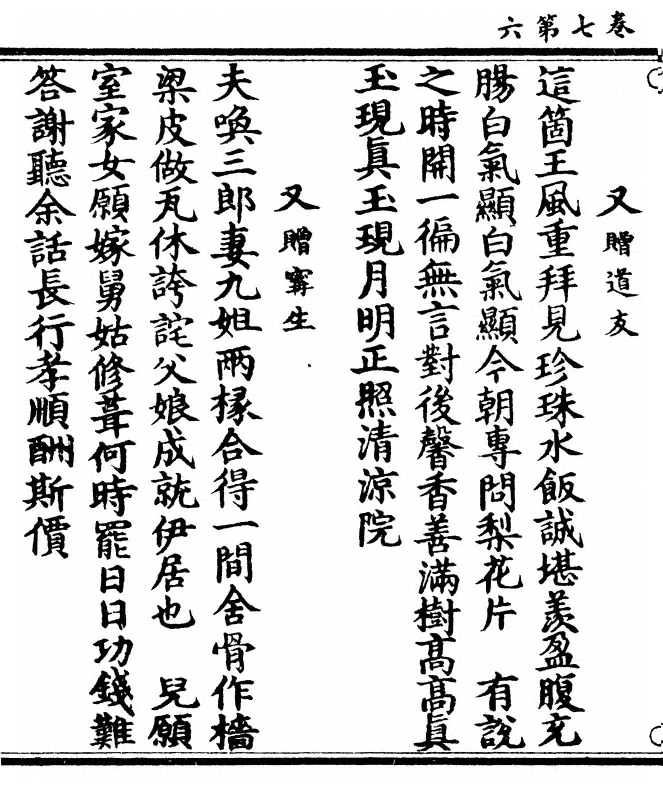 卷七第六
又贈道友
這箇王風重拜見珍珠水飯誠堪羨盈腹充
腸白氣顯白氣顯今朝專問梨花片　有說
之時開一徧無言對後馨香善滿樹高高眞
玉現眞玉現月明正照清涼院
又贈寗生
夫喚三郎妻九姐兩椽合得一間舍骨作檣
梁皮做瓦休誇詫父娘成就伊居也　兒願
室家女願嫁舅姑修葺何時罷日日功錢難
答謝聽余話長行孝順酬斯價